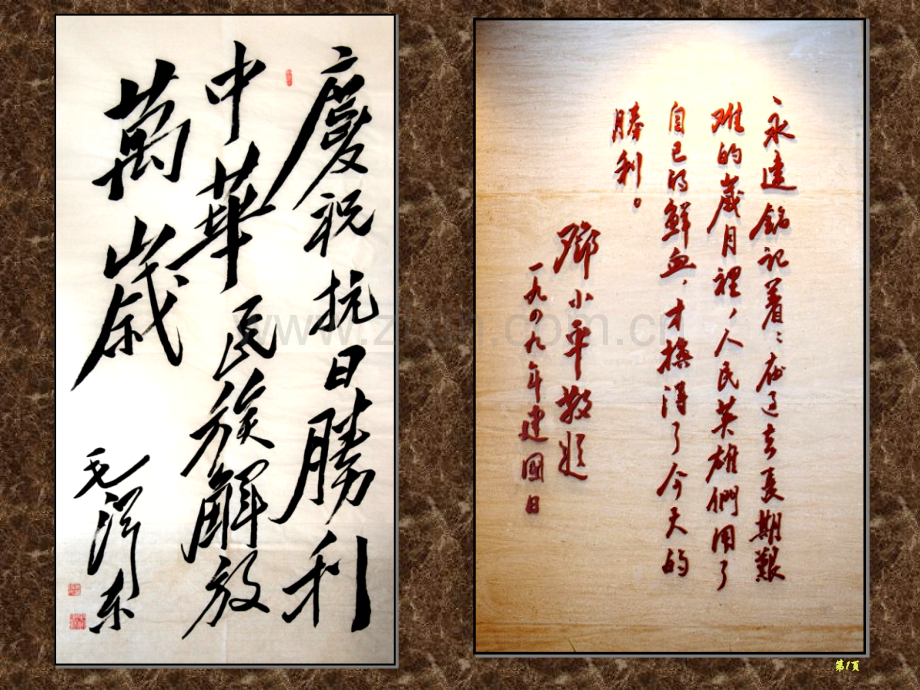 慶祝抗日勝利
中華民族解放
萬歲
毛澤东
永遠銘記着：在过去長期艱
难的歲月裡，人民英雄們用了
自己的鮮血，才换得了今天的
勝利。
鄧小平敬題
一九四九年建國日
www.zixin.com.cn
第1頁